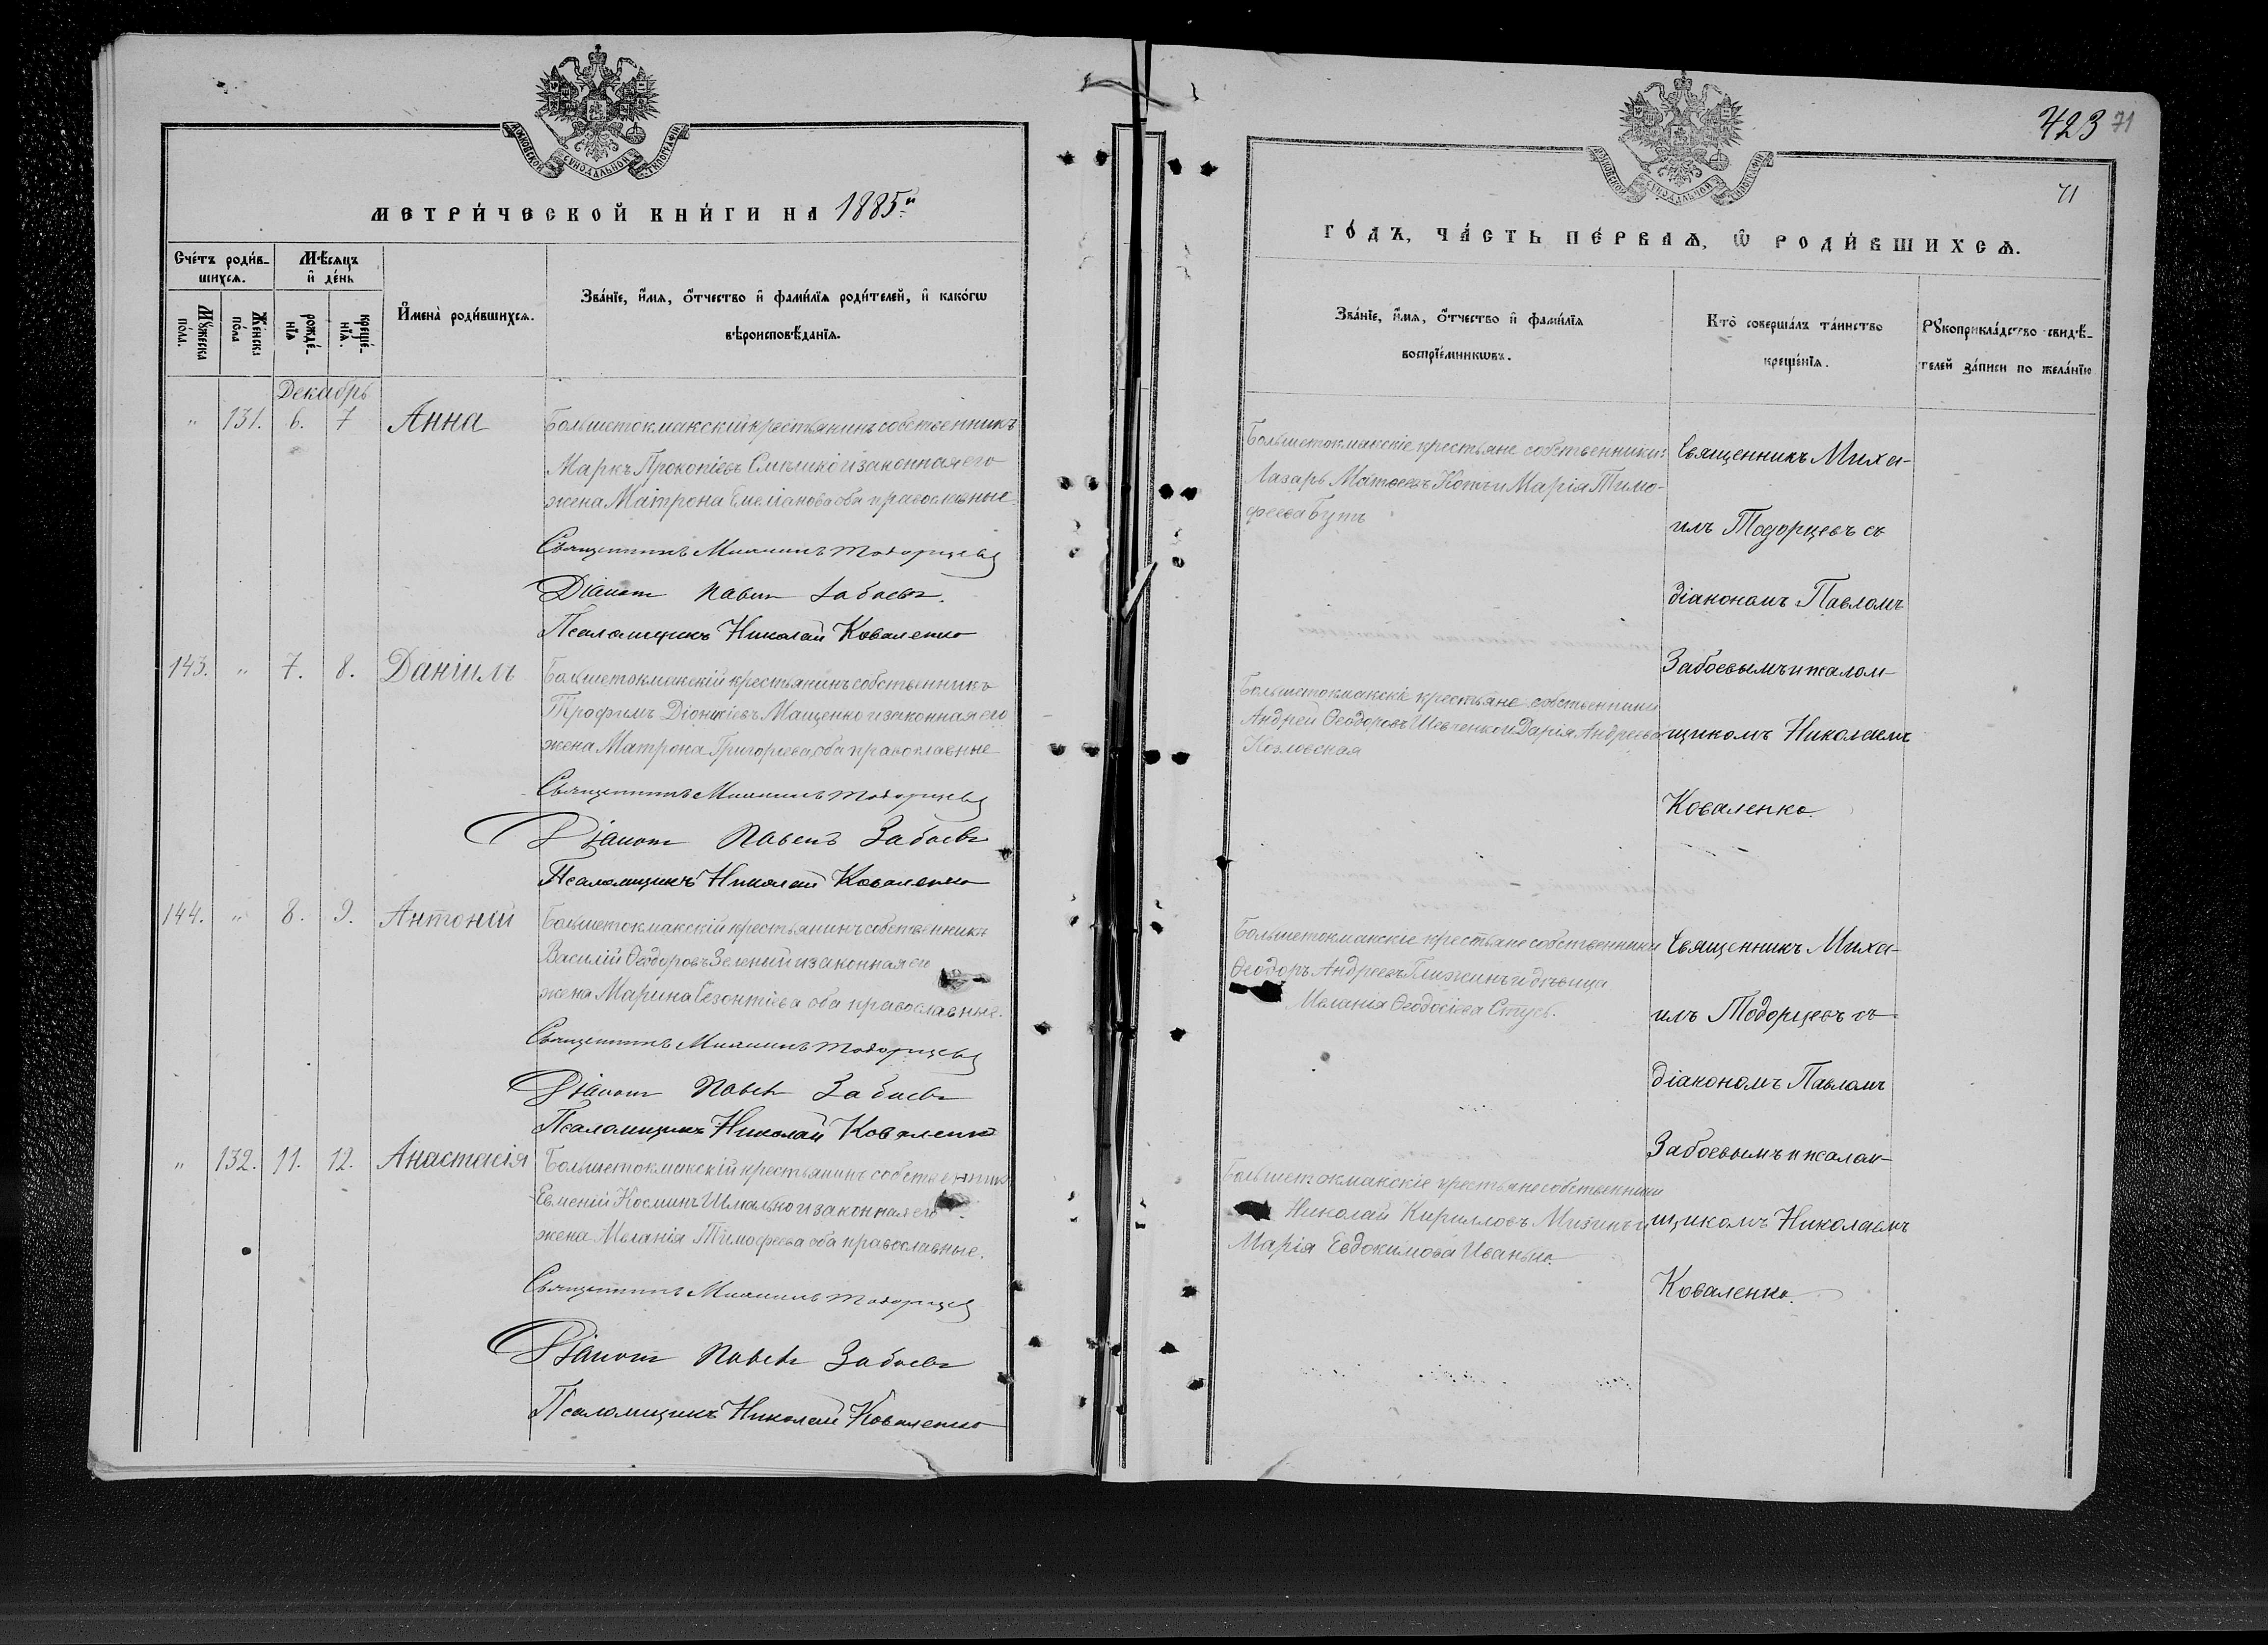 МОСКОВСКОЙ СѴНОДАЛЬНОЙ ТИПОГРАФІИ
МЕТРИ́ЧЕСКОЙ КНИ́ГИ НА 1885й
Сче́тъ роди́в-
шихсѧ.
Мѣ́сѧцъ
и҆ де́нь
Мꙋ́жеска
по́ла.
Же́нска
по́ла
рожде́-
нїѧ
креще́-
нїѧ.
И҆мена̀ роди́вшихсѧ.
Зва́нїе, и҆́мѧ, ѻ҆́тчество и҆ фами́лїѧ роди́телей, и҆ како́гѡ
вѣроисповѣ́данїѧ.
Декабрь
" 131. 6. 7 Анна
Большетокмакскій крестьянинъ собственникъ
Маркъ Прокопіевъ и законная его
жена Матрона Емеліанова оба православные
Священникъ Михаилъ Тодорцевъ
Діаконъ Павелъ Забоевъ.
Псаломщикъ Николай Коваленко
143. " 7. 8. Даніилъ
Большетокмакскій крестьянинъ собственникъ
Трофимъ Діонисіевъ Мащенко и законная его
жена Матрона Григорьева, оба православные
Священникъ Михаилъ Тодорцевъ
Діаконъ Павелъ Забоевъ
Псаломщикъ Николай Коваленко
144. " 8. 9. Антоній
Большетокмакскій крестьянинъ собственникъ
Василій Ѳеодоровъ Зеленый и законная его
жена Марина оба православные.
Священникъ Михаилъ Тодорцевъ
Діаконъ Павелъ Забоевъ
Псаломщикъ Николай Коваленко
" 132. 11. 12. Анастасія
Большетокмакскій крестьянинъ собственникъ
Евменій Косминъ Шмалько и законная его
жена Меланія Тимофеева оба православные.
Священникъ Михаилъ Тодорцевъ
Діаконъ Павелъ Забоевъ
Псаломщикъ Николай Коваленко
423 71
71
МОСКОВСКОЙ СѴНОДАЛЬНОЙ ТИПОГРАФІИ
ГО́ДЪ, ЧА́СТЬ ПЕ́РВАѦ, Ѡ҆ РОДИ́ВШИХСѦ.
Зва́нїе, и҆́мѧ, ѻ҆́тчество и҆ фами́лїѧ
воспрїе́мникѡвъ.
Кто̀ соверша́лъ та́инство
креще́нїѧ.
Рꙋкоприкла́дство свидѣ́-
телей за́писи по жела́нїю
Большетокмакскіе крестьяне собственники:
Лазарь Матвеевъ Котъ и Марія Тимо-
феева Бутъ
Священникъ Миха-
илъ Тодорцевъ съ
діакономъ Павломъ
Забоевымъ и псалом-
щикомъ Николаемъ
Коваленко.
Большетокмакскіе крестьяне собственники
Андрей Ѳеодоровъ Шевченко и Дарія Андреева
Козловская
Большетокмакскіе крестьяне собственники
Ѳеодоръ Андреевъ и дѣвица
Меланія Ѳеодосіева Стусь.
Священникъ Миха-
илъ Тодорцевъ съ
діакономъ Павломъ
Забоевымъ и псалом-
щикомъ Николаемъ
Коваленко.
Большетокмакскіе крестьяне собственники
Николай Кирилловъ Мизинъ и
Марія Евдокимова Иванько.